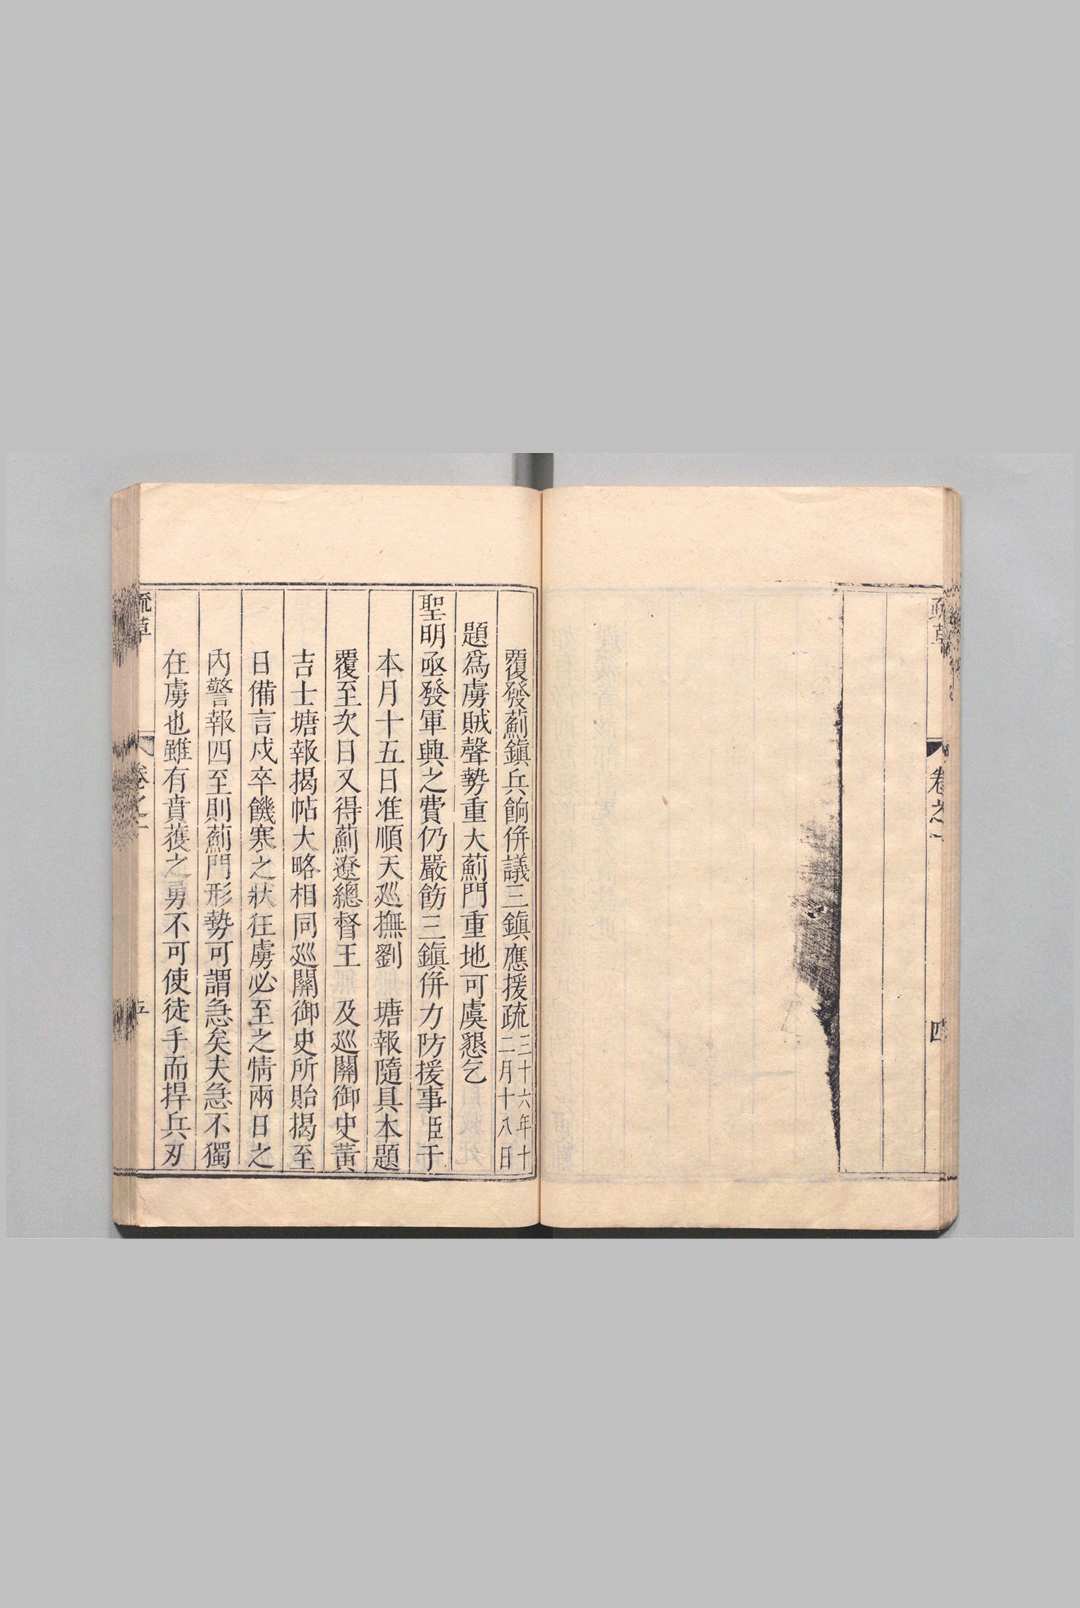 疏草
卷之一
四
覆發薊鎮兵餉併議三鎮應援疏三十六年十二月十八日
題為虜賊聲勢重大薊門重地可虞懇乞
聖明亟發軍興之費仍嚴飭三鎮併力防援事臣于
本月十五日准順天巡撫劉 塘報隨具本題
覆至次日又得薊遼總督王 及巡關御史黃
吉士塘報揭帖大略相同巡關御史所貽揭至
日備言戍卒饑寒之狀往虜必至之情兩日之
內警報四至則薊門形勢可謂急矣夫急不獨
在虜也雖有賁獲之勇不可使徒手而捍兵刃
疏草
卷之一
五